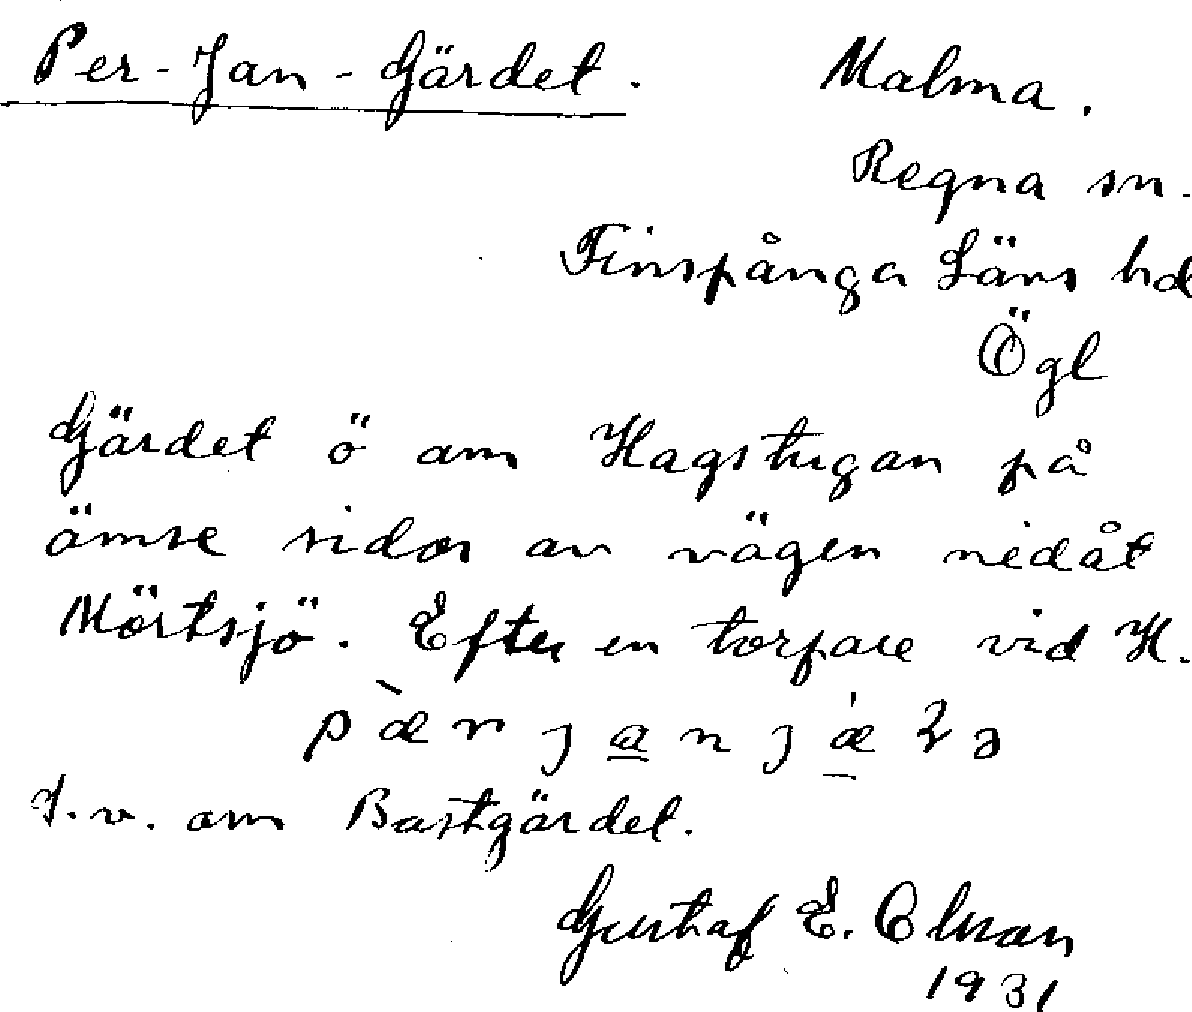 Per-Jan-Gärdet. Malma.
Regna sn.
Finspånga Läns hd
Ögl
Gärdet ö om Hagstugan på
ömse sidor av vägen nedåt
Mörtsjö. Efter en torpare vid H.
J.v. om Bastgärdet.
Gustaf E. Olsson
1931